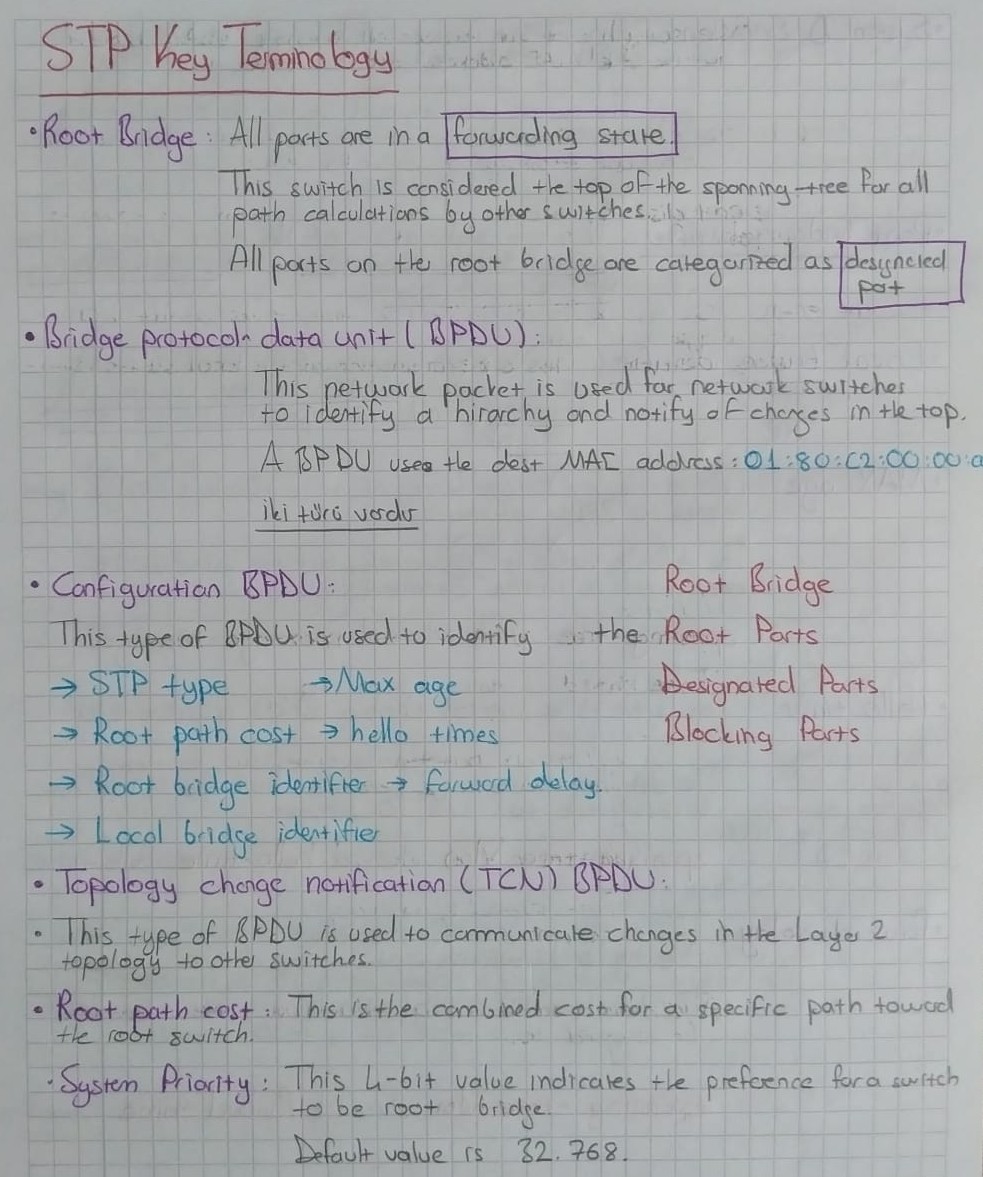 STP Key Terminology
• Root Bridge : All ports are in a forwarding state.
This switch is considered the top of the spanning-tree for all
path calculations by other switches.
All ports on the root bridge are categorized as designeted
port
• Bridge protocol data unit ( BPDU ) :
This network packet is used for network switches
to identify a hirarchy and notify of changes in the top.
A BPDU uses the dest MAC address : 01:80:C2:00:00:0
iki türü vardır
• Configuration BPDU : Root Bridge
This type of BPDU is used to identify the Root Ports
→ STP type → Max age Designated Ports
→ Root path cost → hello times Blocking Ports
→ Root bridge identifier → forward delay.
→ Local bridge identifier
• Topology change notification (TCN) BPDU :
• This type of BPDU is used to communicate changes in the Layer 2
topology to other switches.
• Root path cost : This is the combined cost for a specific path toward
the root switch.
• System Priority : This 4-bit value indicates the preference for a switch
to be root bridge.
Default value is 32.768.